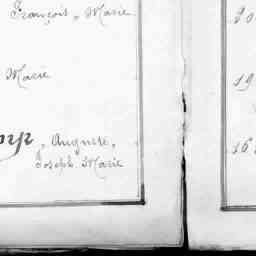 François, Marie
Marie
, Auguste,
Joseph Marie
19